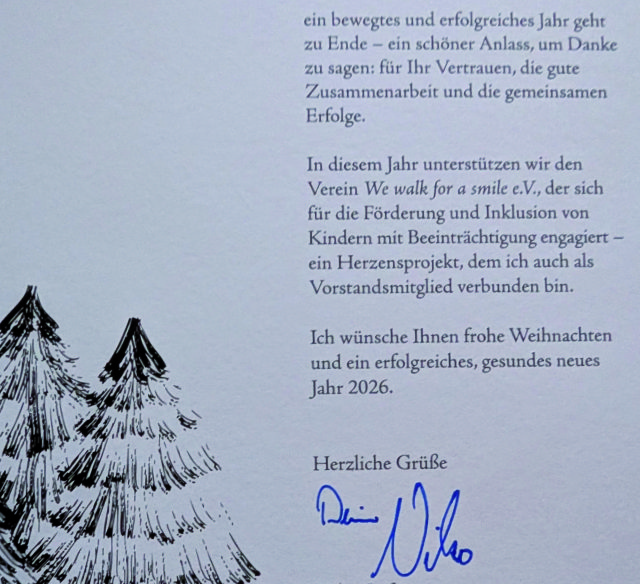 ein bewegtes und erfolgreiches Jahr geht
zu Ende – ein schöner Anlass, um Danke
zu sagen: für Ihr Vertrauen, die gute
Zusammenarbeit und die gemeinsamen
Erfolge.
In diesem Jahr unterstützen wir den
Verein We walk for a smile e.V., der sich
für die Förderung und Inklusion von
Kindern mit Beeinträchtigung engagiert –
ein Herzensprojekt, dem ich auch als
Vorstandsmitglied verbunden bin.
Ich wünsche Ihnen frohe Weihnachten
und ein erfolgreiches, gesundes neues
Jahr 2026.
Herzliche Grüße
Niko